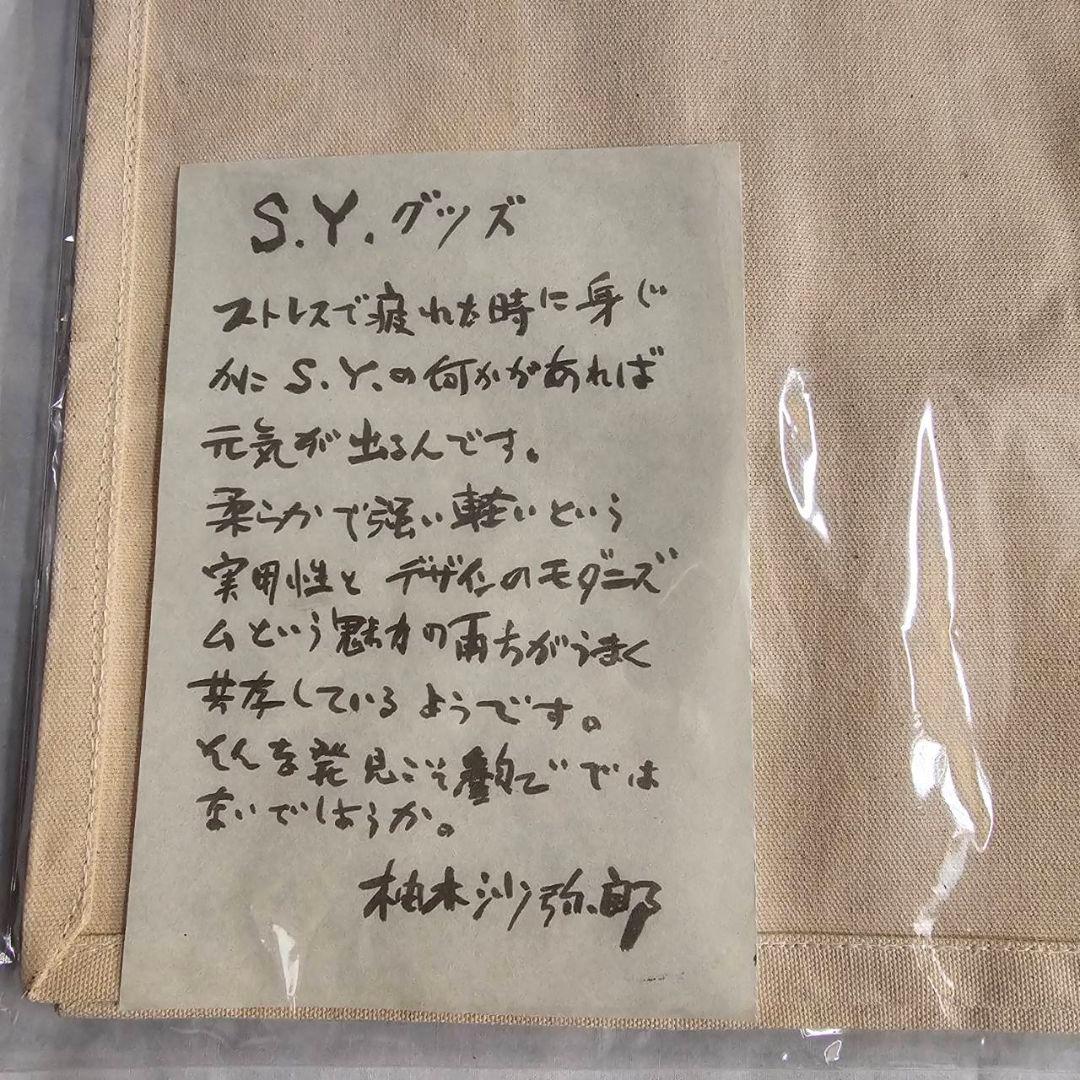 S.Y.グッズ
ストレスで疲れた時に身じ
かに S.Y.の何かがあれば
元気が出るんです。
柔らかで強い軽いという
実用性とデザインのモダニズ
ムという魅力の両方がうまく
共存しているようです。
そんな発見こそ では
ないでしょうか。
柚木沙弥郎